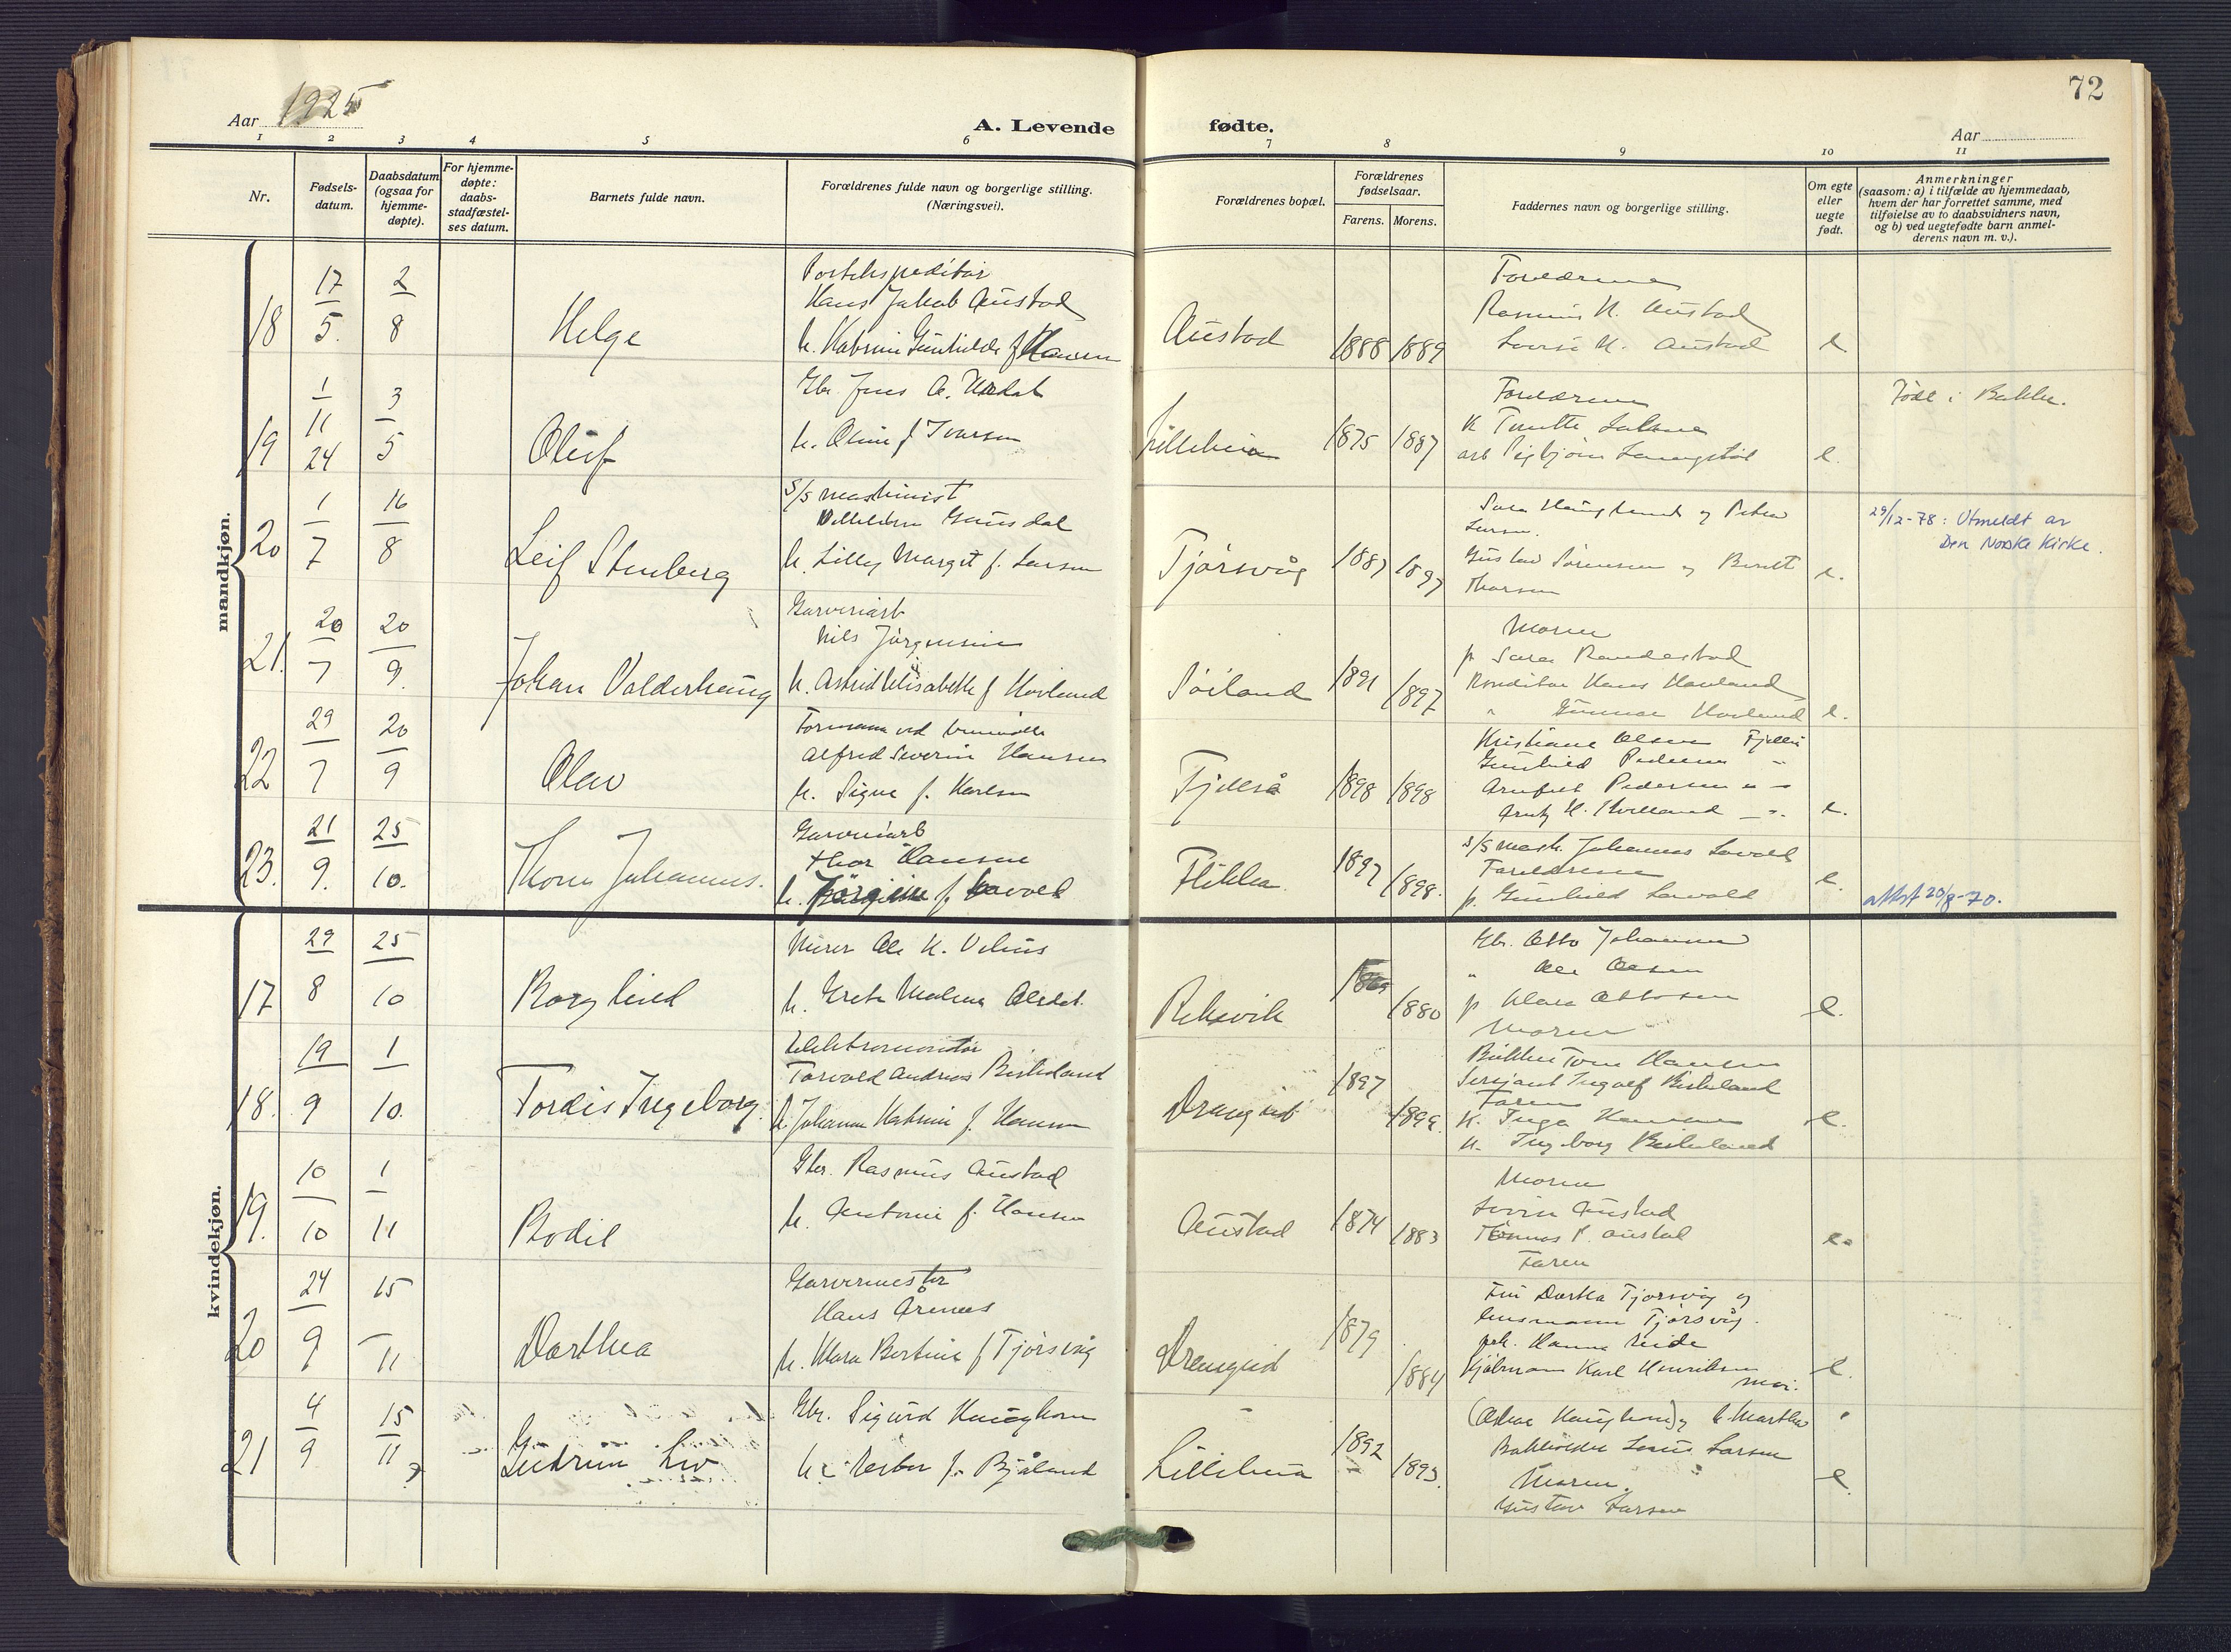 72
Aar 1925
A. Levende fødte.
Aar
1 2 3 4 5 6 7 8 9 10 11
Nr.
Fødsels-
datum.
Daabsdatum
(ogsaa for
hjemme-
døpte).
For hjemme-
døpte:
daabs-
stadfæstel-
ses datum.
Barnets fulde navn.
Forældrenes fulde navn og borgerlige stilling.
(Næringsvei).
Forældrenes bopæl.
Forældrenes
fødselsaar.
Farens. Morens.
Faddernes navn og borgerlige stilling.
Om egte
eller
uegte
født.
Anmerkninger
(saasom: a) i tilfælde av hjemmedaab,
hvem der har forrettet samme, med
tilføielse av to daabsvidners navn,
og b) ved uegtefødte barn anmel-
derens navn m. v.).
mandkjøn.
18
17/5.
2/8
Helge
Postekspeditør
Hans Jakob Austad
h. Katrine Gunhilde f Hansen
Austad
1888 1889
Forældrene
Rasmus H. Austad
Lovise H. Austad
e
19
1/11 24
3/5
Oluf
Gbr. Jens A. Urdal
h. Oline f Ivarsen
Lilleheia
1875 1887
Forældrene
e.
Født i Bakke.
20
1/7
16/8
Leif Stenberg
S/S maskinist
Villiam Gausdal
h. Lilly Margit f. Larsen
Tjørsvåg
1887 1897
Larsen.
Gustav Sørensen og Berdt
Thorsen
e.
29/12-78: Utmeldt av
Den Norske Kirke.
21.
20/7
20/9.
Johan Valderhaug
Garveriarb
Nils Jørgensen
h. Astrid Elisabeth f Hovland
Søiland
1891 1897
Moren
p Sara Randestad
Konditor Hans Hovland
" Gunnar Hovland
e.
22
29/7
20/9
Olav
Formann ved
Alfred Severin Hansen
h. Signe f. Karlsen
Fjellså
1898 1898
Kristiane Olsen Fjellså
Gunhild Pedersen "
Arnfred Pedersen " "
e.
23.
21/9.
25/10.
Thom Johannes.
Garveriarb
Thor Hansen
h. Jørgine f. Lavold
Flikka
1897 1898.
S/S mask. Johannes Lavold
Forældrene
p. Gunhild Lavold
e.
attst 20/8-70.
kvindekjøn.
17
29/8
25/10
Borghild
Murer Ole K. Velius
h. Grete Malene Olsdat.
Reksvik
1880
Gbr. Otto Johannesen
" Ole Olsen
p Klara Ottosen
Moren
e.
18.
19/9
1/10.
Tordis Ingeborg.
Elektromontør
Torvald Andreas Birkeland
h. Johanne Katrine f. Hansen
Drangeid
1897
Bakker Tom Hansen
Sersjant Ingolf Birkeland
Faren
K. Inga Hansen
K. Ingeborg Birkeland
e.
19.
10/10
1/11
Bodil
Gbr. Rasmus Austad
h. Antonie f. Hansen
Austad
1874 1883
Moren
Lovise Austad
Tønnes R. Austad
Faren
e.
20
24/9
15/11
Dorthea
Garvermester
Hans Årenes
h. Klara Bertine f Tjørsvåg
Drangeid
1879 1884
Fru Dortea Tjørsvåg og
lensmann Tjørsvåg.
pik. Hanna Eide
Kjøbmann Karl Henriksen
Mor.
e.
21
4/9
15/11
Gudrun Liv
Gbr. Sigurd Haughom
h. Ester f. Bjåland
Lilleheia
1892 1893.
(Oskar Haughom) og h. Marthe
Louis Larsen
Moren.
Gustav Larsen
e